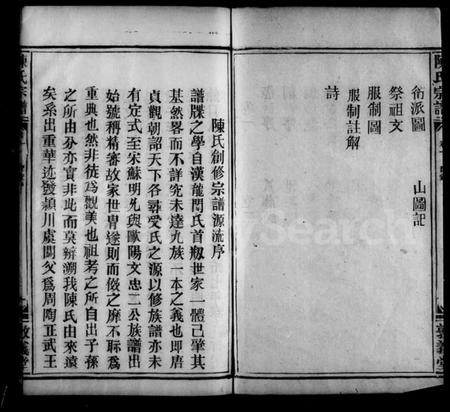 衍派圖　山圖記
祭祖文
服制圖
服制註解
詩
敦義堂
陳氏宗譜
陳氏創修宗譜源流序
譜牒之學自漢龍門氏首剏世家一體已肇其
基然畧而不詳究未達九族一本之義也卽唐
貞觀朝詔天下各尋受氏之源以修族譜亦未
有定式至宋蘇明允與歐陽文忠二公族譜出
始號稱精審故家世胄遂則而傚之靡不聆爲
重典也然非徒爲觀美也祖考之所自出子孫
之所由分亦實非此而莫辨溯我陳氏由來遠
矣系出重華迹發潁川虞閼父爲周陶正武王
敦義堂